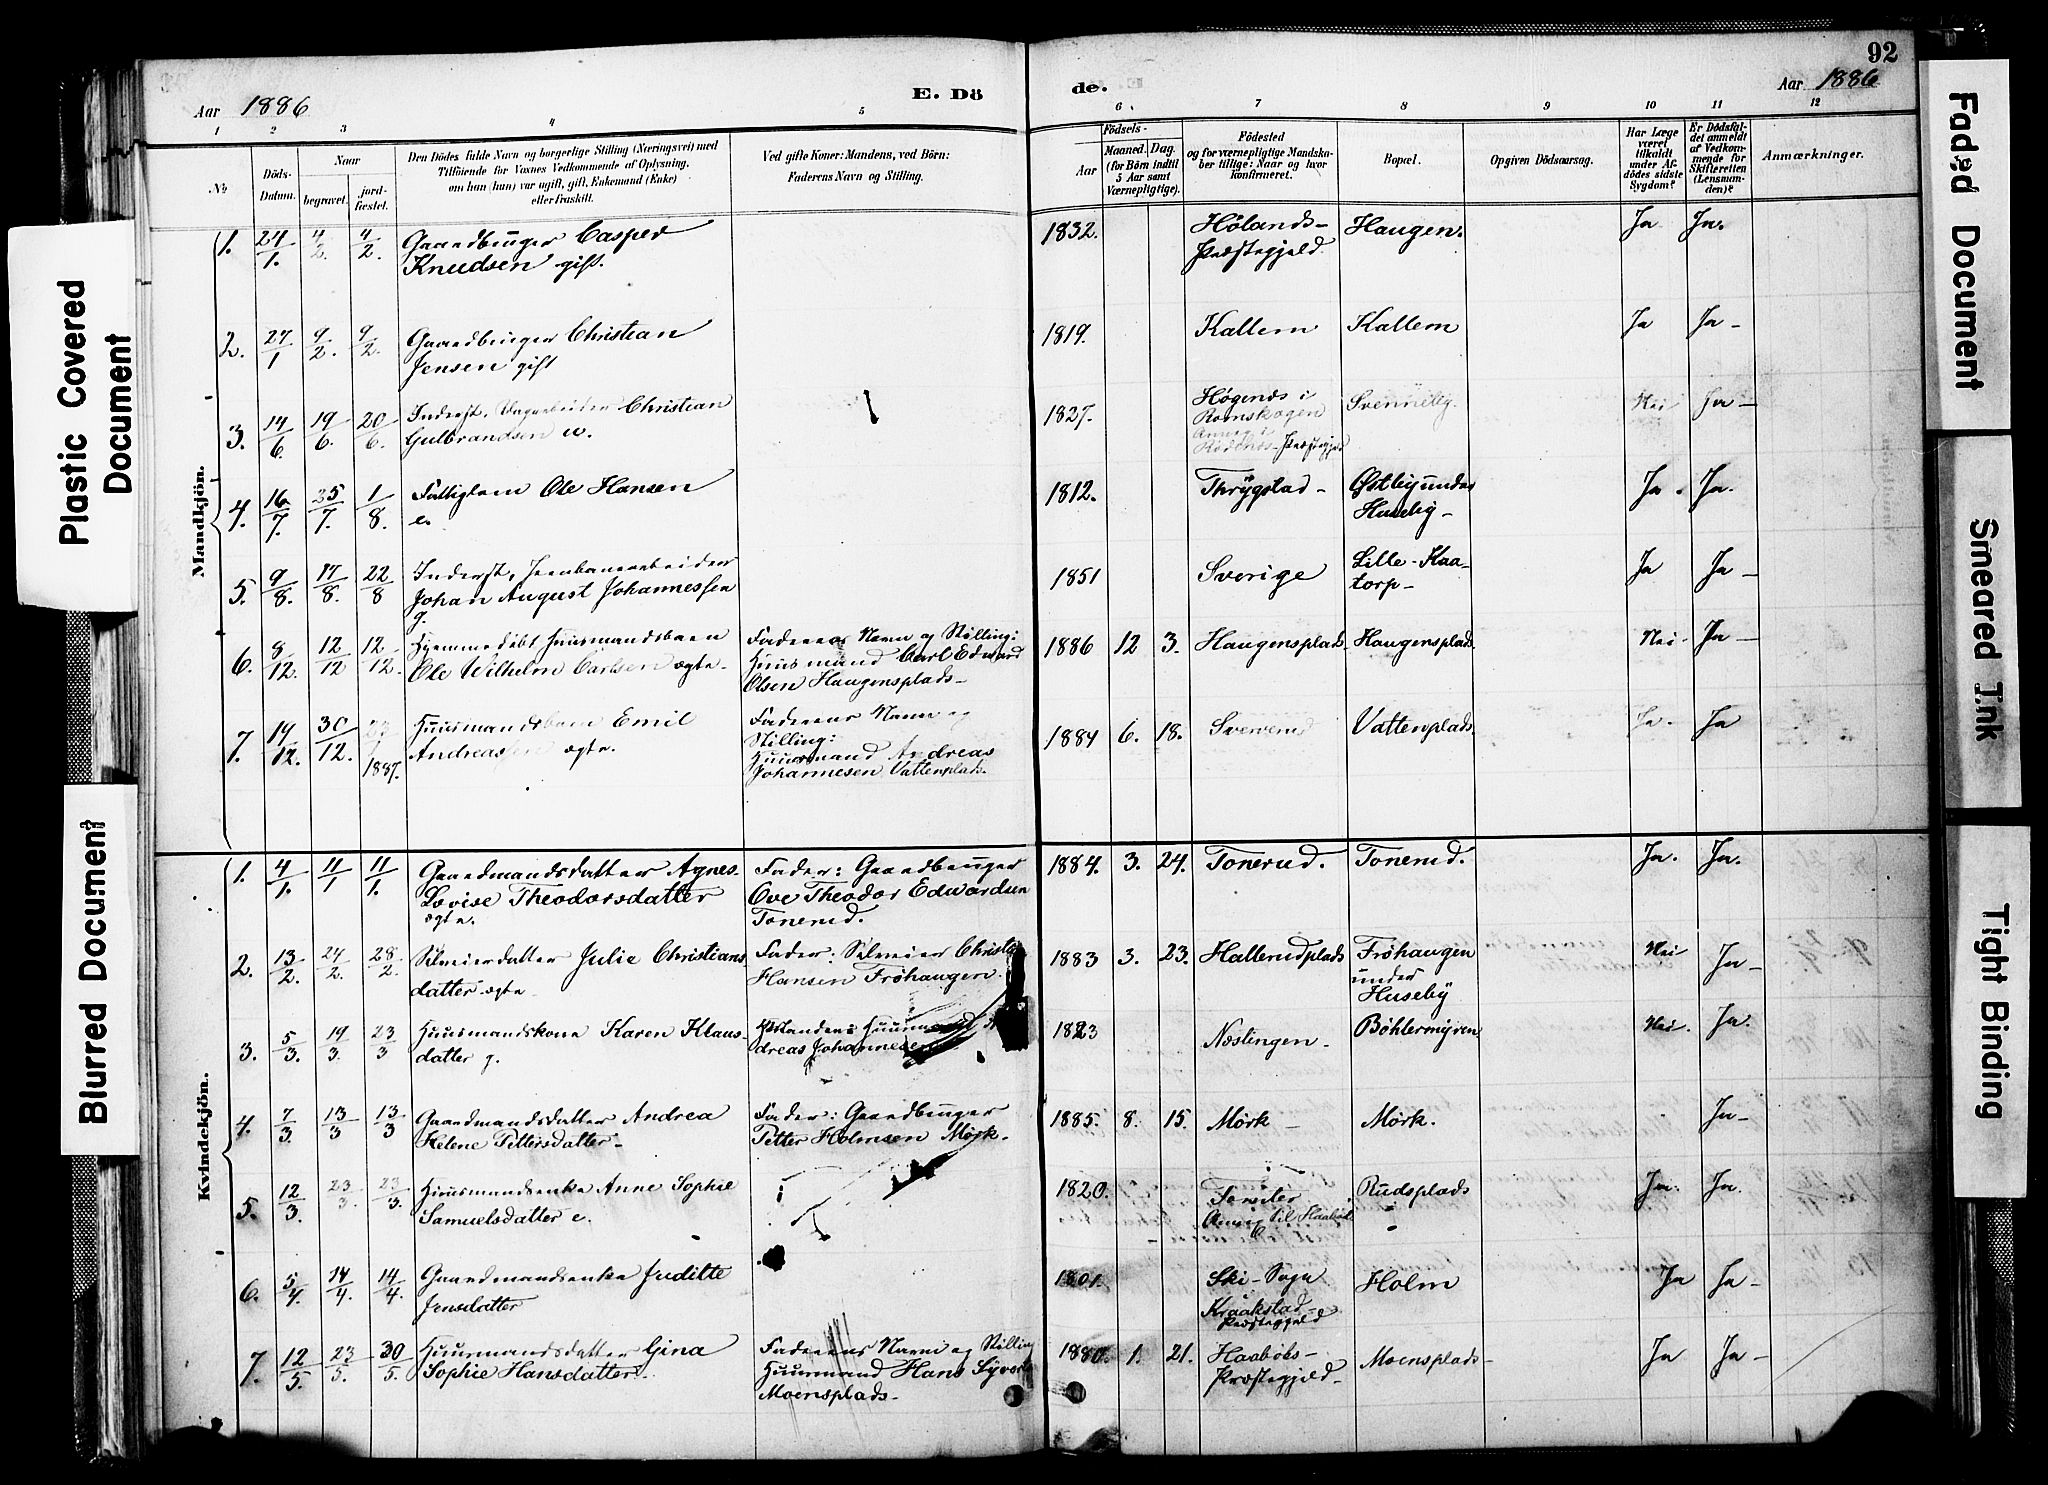 92
Aar 1886 E. Dö
de. Aar 1886
1 2 3 4 5
6. 7 8 9 10 11 12
No
Döds-
Datum.
Naar
begravet.
jord-
fæstet.
Den Dödes fulde Navn og borgerlige Stilling (Næringsvei) med
Tilföiende for Voxnes Vedkommende af Oplysning,
om han (hun) var ugift, gift, Enkemand (Enke)
eller fraskilt.
Ved gifte Koner: Mandens, ved Börn:
Faderens Navn og Stilling.
Födsels-
Aar
Maaned. Dag.
(for Börn indtil
5 Aar samt
Værnepligtige).
Födested
og for værnepligtige Mandska-
ber tillige: Naar og hvor
konfirmeret.
Bopæl.
Opgiven Dödsaarsag.
Har Læge
været
tilkaldt
under Af-
dödes sidste
Sygdom?
Er Dödsfal-
det anmeldt
af Vedkom-
mende for
Skifteretten
(Lensman-
den)?
Anmærkninger.
Mandkjön.
1. 24/1. 4/2. 4/2. Gaardbruger Casper
Knudsen gift.
1832. Hølands-
Præstegjeld. Haugen. Ja Ja.
2. 27/1 9/2. 9/2. Gaardbruger Christian
Jensen gift
1819. Kallem Kallem Ja Ja-
3. 14/6. 19/6. 20/6. Inderst, Dagarbeider Christian
Gulbrandsen u.
1827. Høgends i
Romskogen
Annex i
Rødenes-Præstegjeld Svenneby. Nei Ja-
4. 16/7. 25/7. 1/8. Fattiglem Ole Hansen
e.
1812. Thrygstad- Østbyundes
Huseby- Ja. Ja.
5. 9/8. 17/8. 22/8 Inderst, Jernbanearbeider
Johan August Johannessen
g.
1851 Sverige Lille-Kaa-
torp- Ja Ja-
6. 8/12. 12/12 12/12. Hjemmedøbt Huusmandsbarn
Ole Wilhelm Carlsen ægte- Faderens Navn og Stilling:
Huusmand Carl Edward
Olsen Haugensplads-
1886 12 3. Haugensplads- Haugensplads. Nei- Ja-
7. 19/12. 30/12. 1887. Huusmandsbarn Emil
Andreassen ægte. Faderens Navn og
Stilling:
Huusmand Andreas
Johannesen Vattenplads.
1884 6. 18. Vattenplads. Ja. Ja
Kvindekjön.
1. 4/1. 11/1 11/1. Gaardmandsdatter Agnes
Lovise Theodorsdatter
ægte. Fader: Gaardbruger
Ove Theodor Edwardsen
Tonerud.
1884. 3. 24. Tonerud. Tonerud. Ja. Ja.
2. 13/2. 24/2. 28/2. Selveierdatter Julie Christians-
datter ægte- Fader: Selveier Christian
Hansen Frøhaugen.
1883 3. 23. Hallerudplads Frøhaugen
under
Huseby Nei Ja-
3. 5/3. 19/3. 23/3 Huusmandskone Karen Klaus-
datter g. Mandens: Huusmand An-
dreas Johannesen
1823 Nøstingen- Bøhlermyren Nei. Ja.
4. 7/3. 13/3 13/3 Gaardmandsdatter Andrea
Helene Pettersdatter- Fader: Gaardbruger
Petter Holmsen Mørk-
1885. 8. 15. Mørk- Mørk. Ja-
5. 12/3. 23/3. 23/3. Huusmandsenke Anne Sophie
Samuelsdatter e.
1820. Tomter
Annex til Haabøl Rudsplads Ja. Ja.
6. 5/4. 14/4. 14/4. Gaardmandsenke Juditte
Jensdatter
1801. Ski-Sogn
Kraakstad-
Præstegjeld Holm Ja Ja-
7. 12/5. 23/5. 30/5. Huusmandsdatter Gina
Sophie Hansdatter. Faderens Navn og Stilling
Huusmand Hans Syvert
Moensplads-
1880. 1. 21. Haabøls-
Præstegjeld- Moensplads- Ja Ja-
Plastic Covered
Document
Blurred Document
Faded Document
Smeared Ink
Tight Binding